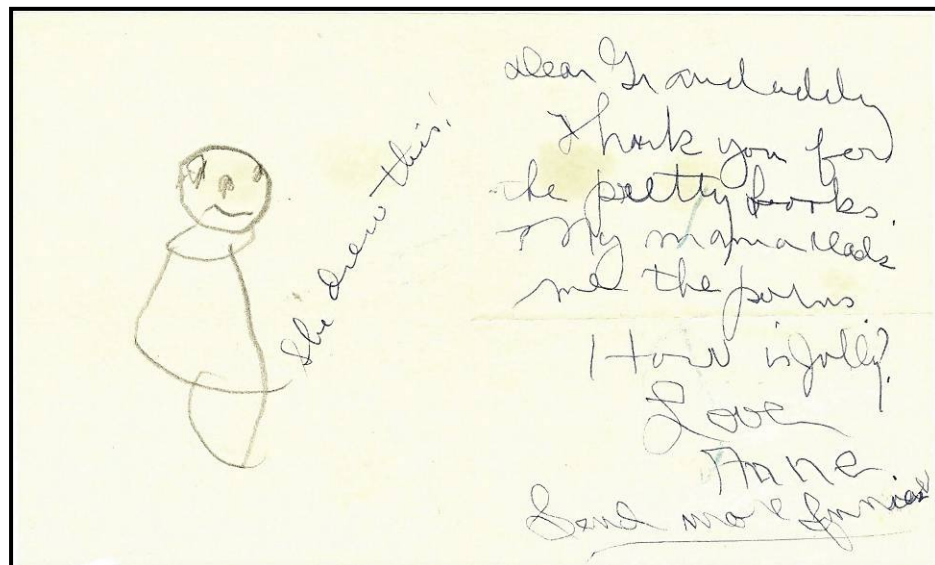 She drew this!
Dear Grandaddy
Thank you for
the pretty books.
My mama reads
me the poems
How is Jolly?
Love
Anne
Send more funnies